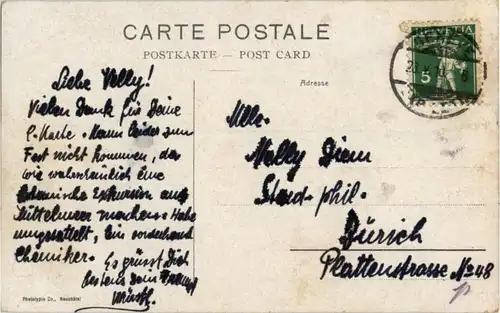 CARTE POSTALE
POSTKARTE - POST CARD
Adresse
HELVETIA
5
Liebe Nelly!
Vielen Dank für Deine
C.-Karte. Kann leider zum
Fest nicht kommen, da
wir wahrscheinlich eine
botanische Exkursion ans
Mittelmeer machen. Habe
umgesattelt, bin vorderhand
Chemiker. Es grüsst Dich
bestens Dein
Mlle.
Nelly Diem
Stud. phil.
Zürich
Plattenstrasse No 48
Phototypie Co., Neuchâtel